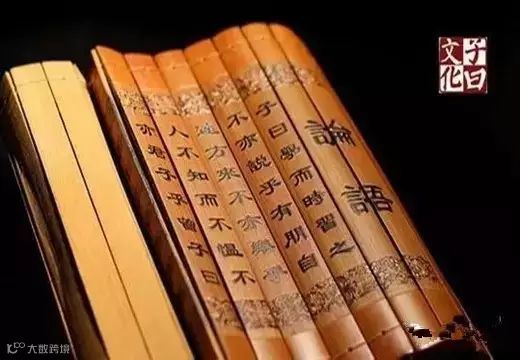 論語
子曰學而時習之
不亦說乎有朋自
遠方來不亦樂乎
人不知而不慍不
亦君子乎曾子曰
子曰
文化
大数跨境